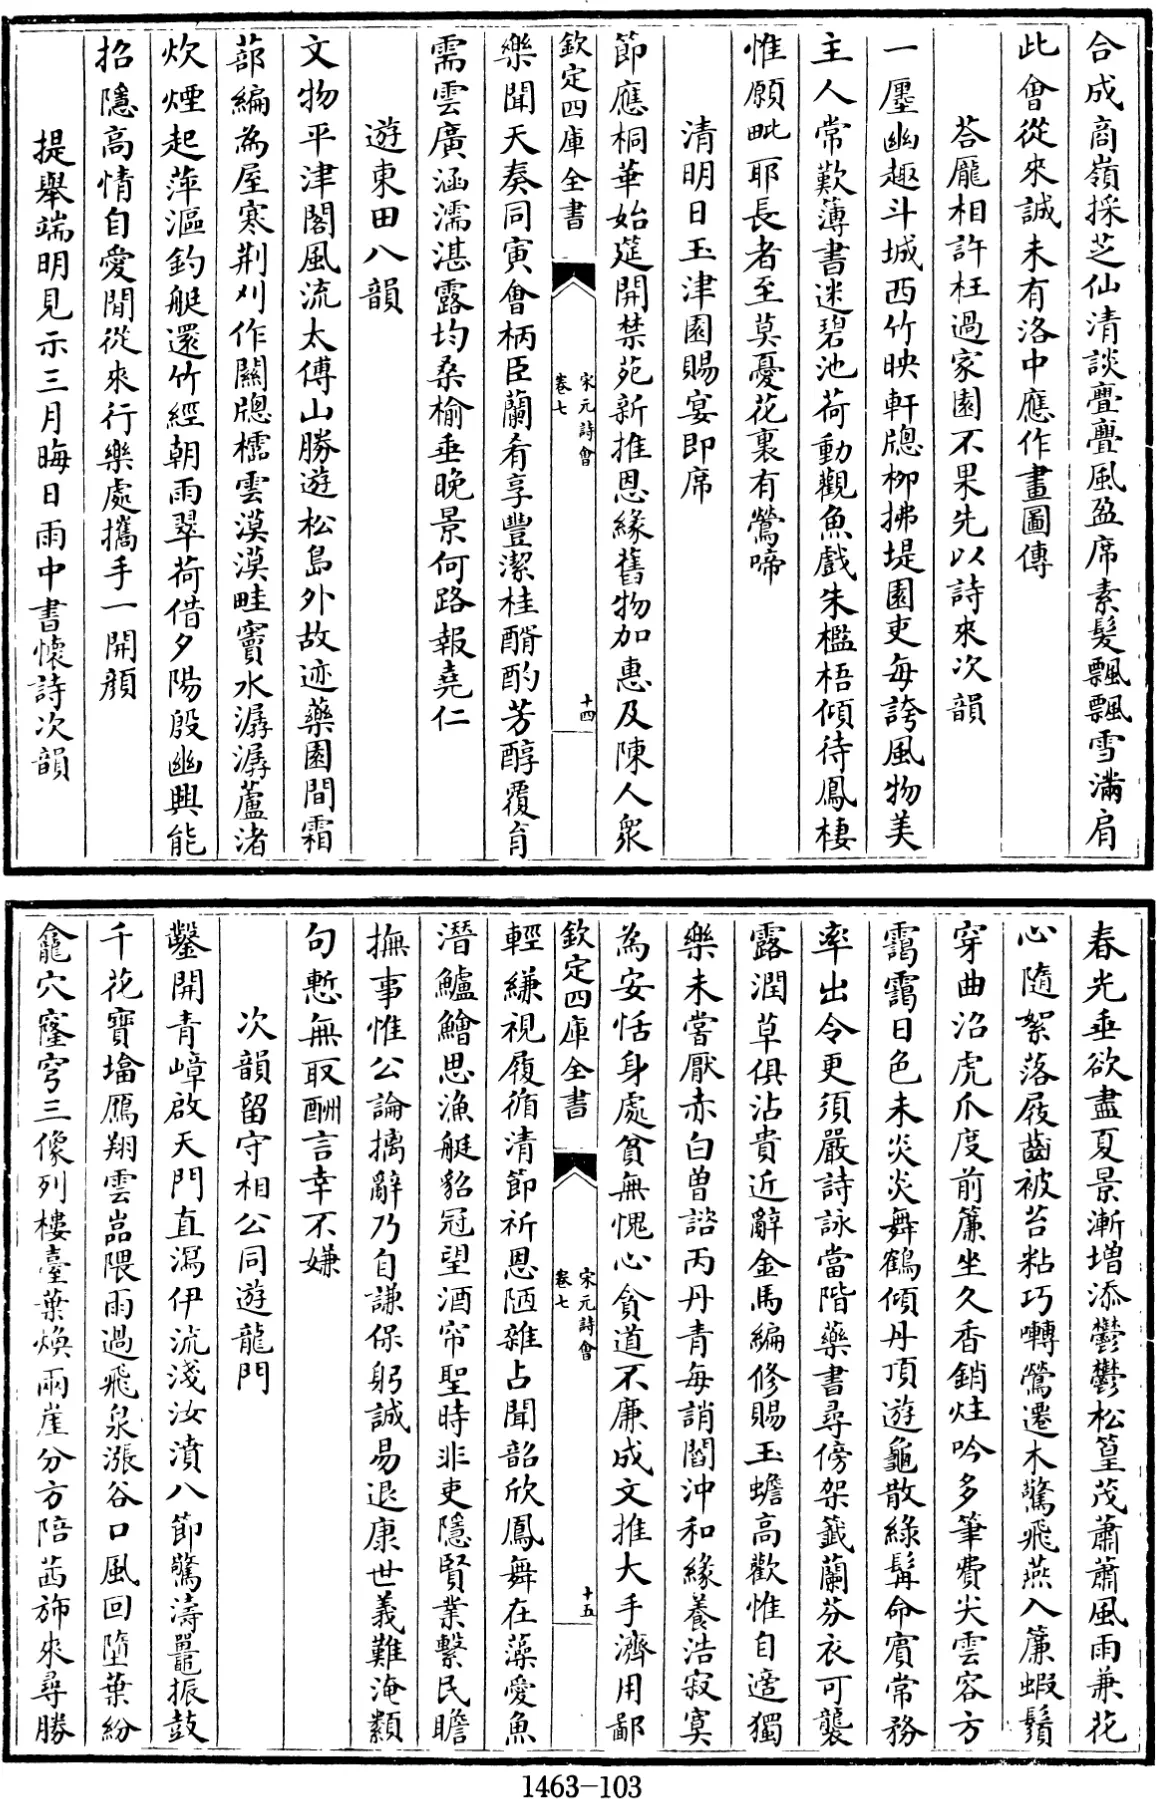 合成商嶺採芝仙清談亹亹風盈席素髮飄飄雪滿肩
此會從來誠未有洛中應作畫圖傳
荅龎相許枉過家園不果先以詩來次韻
一㕓幽趣斗城西竹映軒牕柳拂堤園吏每誇風物美
主人常歎薄書迷碧池荷動觀魚戲朱檻梧傾待鳳棲
惟願毗耶長者至莫憂花裏有鶯啼
清明日玉津園賜宴即席
節應桐華始筵開禁苑新推恩緣舊物加惠及陳人衆
欽定四庫全書
宋元詩會
卷七
十四
樂聞天奏同寅會柄臣蘭肴享豐潔桂醑酌芳醇覆育
需雲廣涵濡湛露均桑榆垂晚景何路報堯仁
遊東田八韻
文物平津閣風流太傅山勝遊松島外故迹藥園間霜
蔀編為屋寒荆刈作關牕櫺雲漠漠畦竇水潺潺蘆渚
炊煙起萍漚釣艇還竹經朝雨翠荷借夕陽殷幽興能
招隱高情自愛閒從來行樂處攜手一開顔
提舉端明見示三月晦日雨中書懷詩次韻
春光垂欲盡夏景漸増添鬱鬱松篁茂蕭蕭風雨兼花
心隨絮落屐齒被苔粘巧囀鶯遷木驚飛燕入簾蝦鬚
穿曲沼虎爪度前簾坐久香銷炷吟多筆費尖雲容方
靄靄日色未炎炎舞鶴傾丹頂遊龜散綠髯命賓常務
率出令更須嚴詩詠當階藥書尋傍架籖蘭芬衣可襲
露潤草俱沾貴近辭金馬編修賜玉蟾高歡惟自適獨
樂未嘗厭赤白曽諮丙丹青每誚閻沖和緣養浩寂寞
為安恬身處貧無愧心貪道不廉成文推大手濟用鄙
欽定四庫全書
宋元詩會
卷七
十五
輕縑視履循清節祈恩陋雜占聞韶欣鳳舞在藻愛魚
潛鱸鱠思漁艇貂冠望酒帘聖時非吏隱賢業繫民瞻
撫事惟公論摛辭乃自謙保躬誠易退康世義難淹纇
句慙無取酬言幸不嫌
次韻留守相公同遊龍門
鑿開青嶂啟天門直瀉伊流淺汝濆八節驚濤鼉振鼓
千花寶墖鴈翔雲嵓隈雨過飛泉漲谷口風回墮葉紛
龕穴窪穹三像列樓臺葉煥兩崖分方陪茜斾來尋勝
1463-103